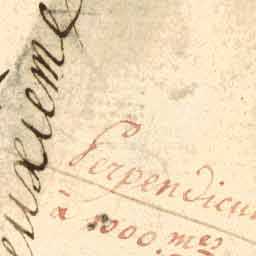 euxieme
Perpendicu
à 1000. mes